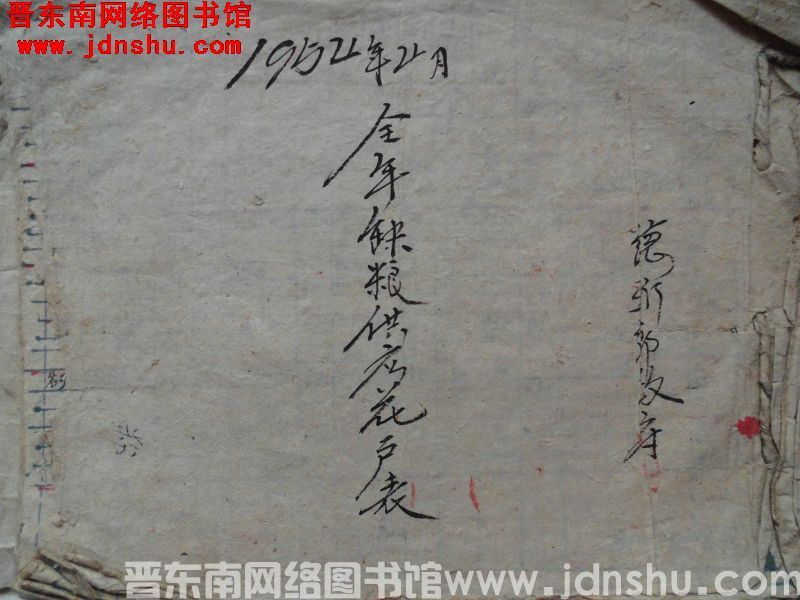 晋东南网络图书馆
www.jdnshu.com
1954年4月
全年缺粮供应花户表
政府
晋东南网络图书馆www.jdnshu.com